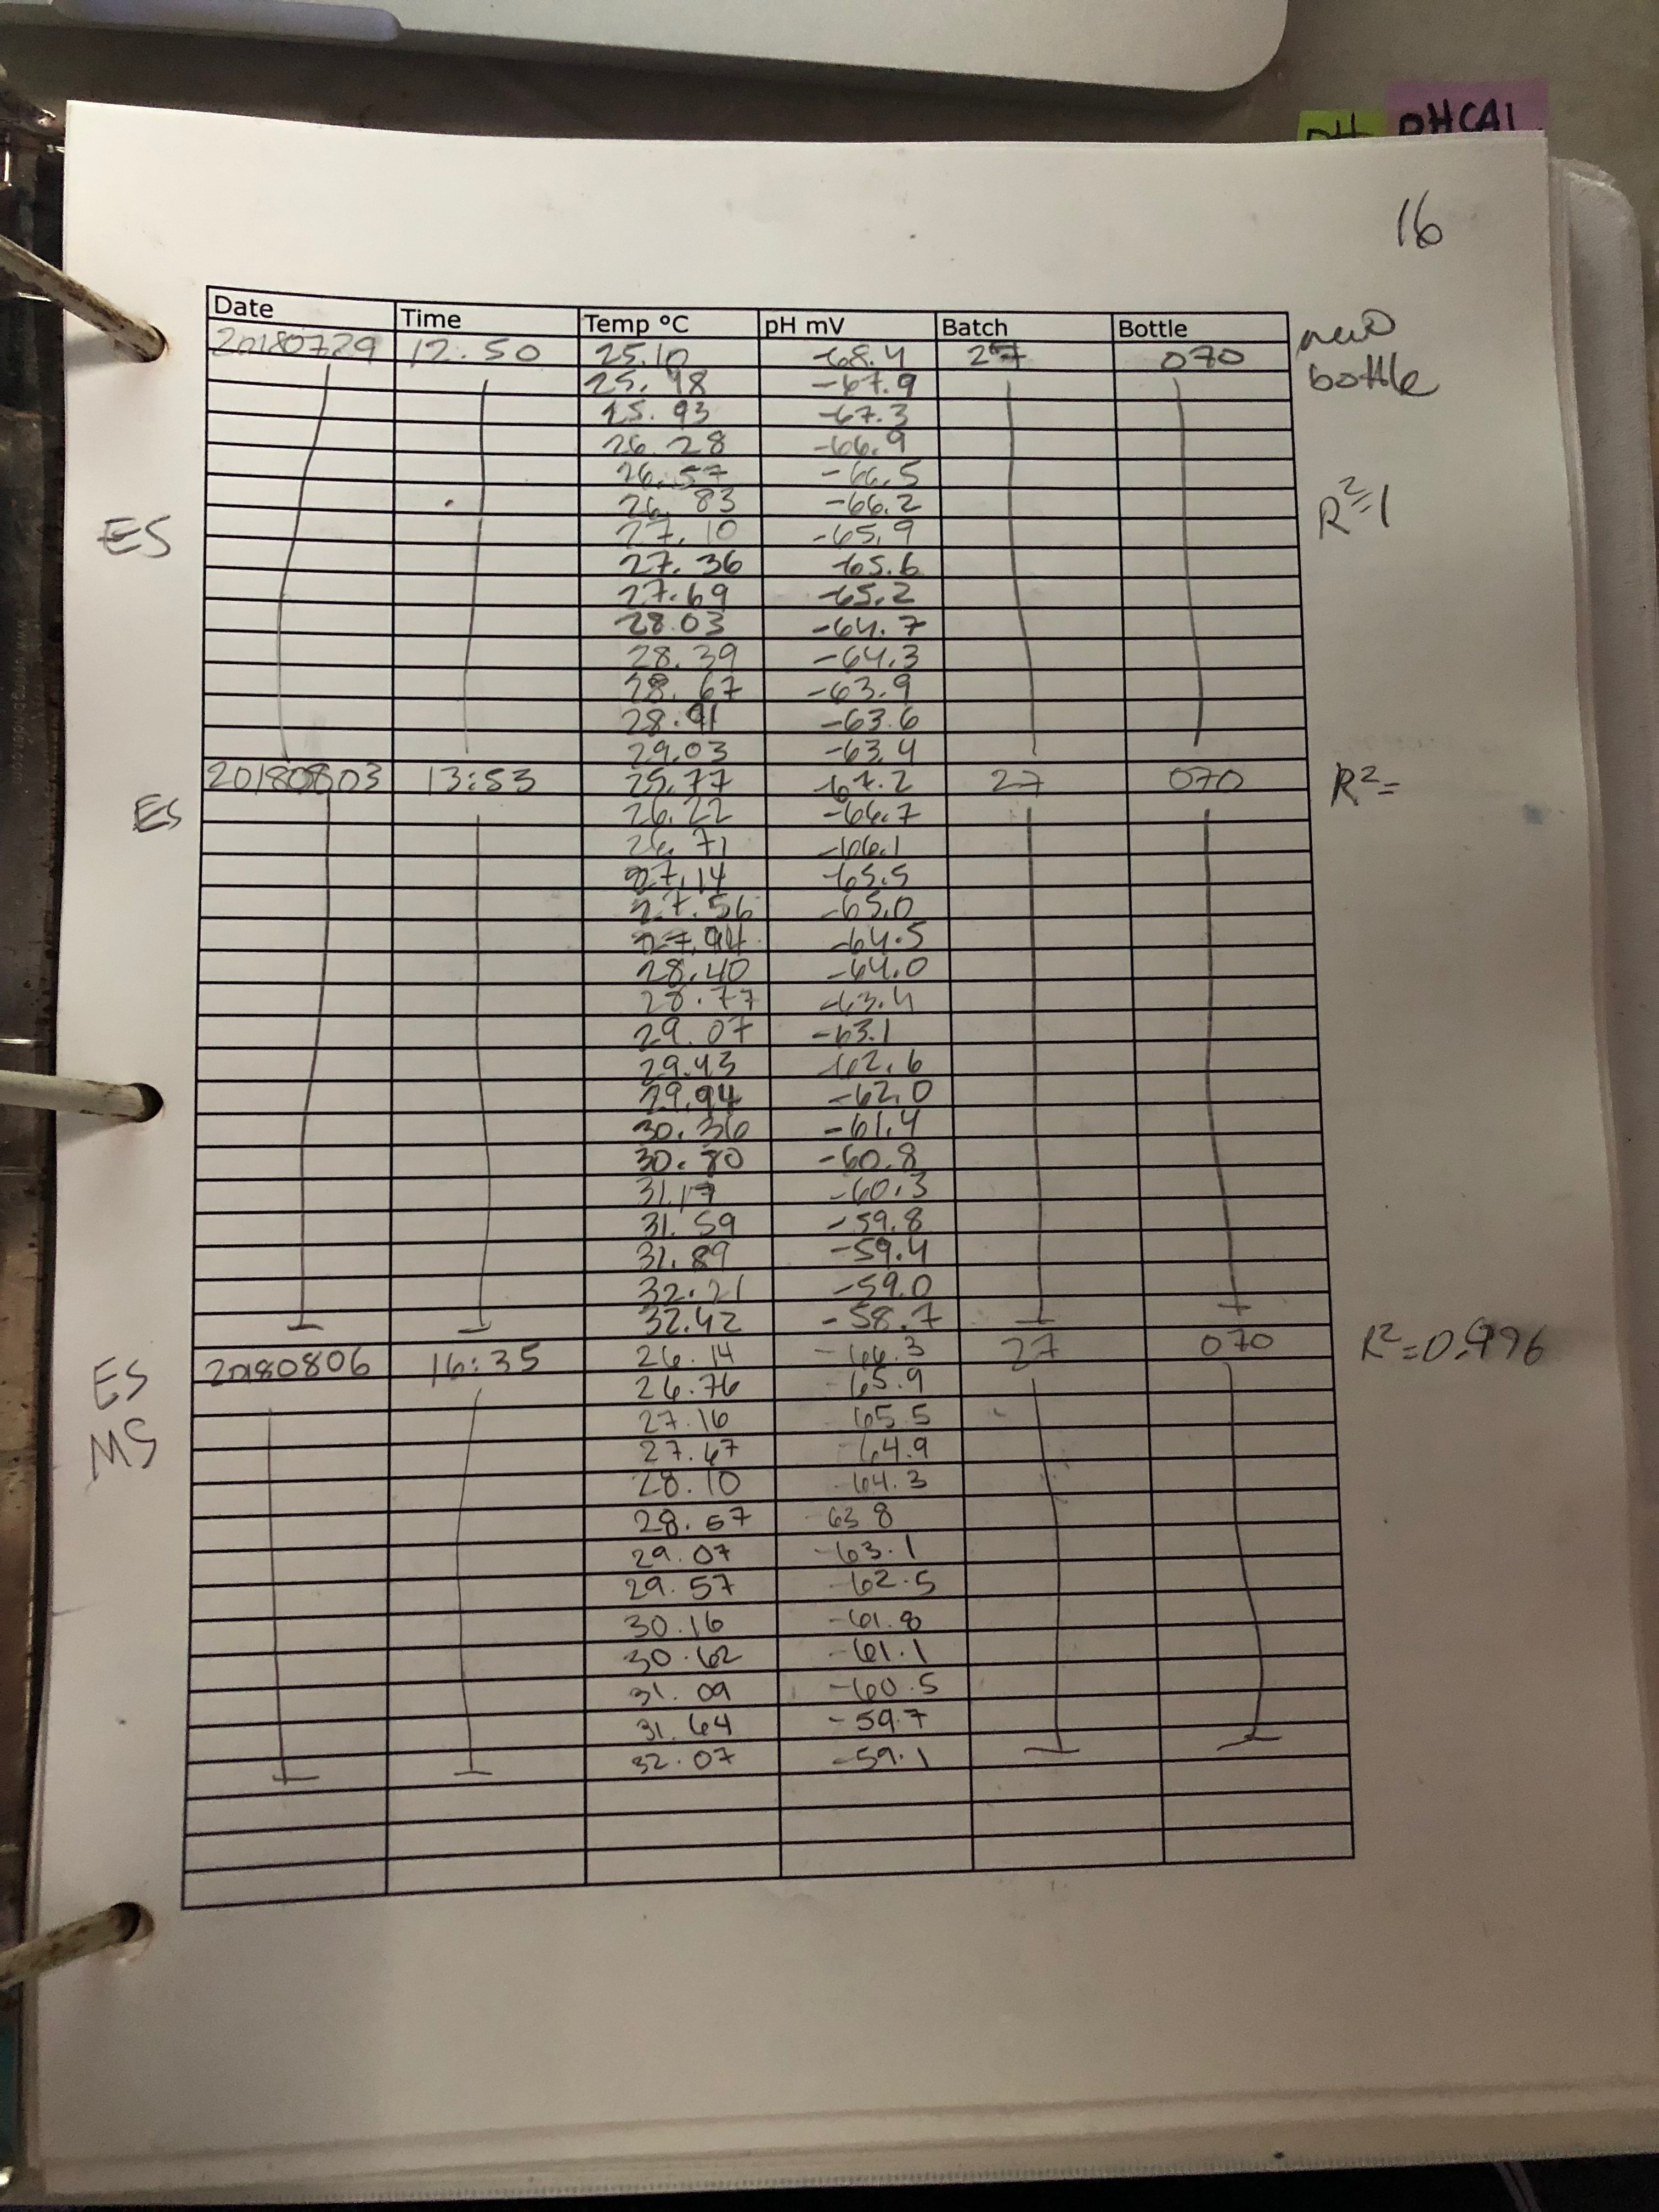 PH PHCAL
16
Date Time Temp °C pH mV Batch Bottle
new
bottle
20180729 12:50 25.10 -68.4 27 070
25.48 -67.9
25.93 -67.3
26.28 -66.9
26.57 -66.5
26.83 -66.2
R²=1
ES
27.10 -65.9
27.36 -65.6
27.69 -65.2
28.03 -64.7
28.39 -64.3
28.67 -63.9
28.91 -63.6
29.03 -63.4
20180803 13:53 25.77 -67.2 27 070 R²=
ES 26.22 -66.7
26.71 -66.1
27.14 -65.5
27.56 -65.0
27.94 -64.5
28.40 -64.0
28.77 -63.4
29.07 -63.1
29.43 -62.6
29.94 -62.0
30.36 -61.4
30.80 -60.8
31.17 -60.3
31.59 -59.8
31.89 -59.4
32.21 -59.0
32.42 -58.7
20180806 16:35 26.14 -66.3 27 070 R²=0.996
ES 26.76 -65.9
27.16 65.5
MS 27.67 -64.9
28.10 -64.3
28.57 -63.8
29.07 -63.1
29.57 -62.5
30.16 -61.8
30.62 -61.1
31.09 -60.5
31.64 -59.7
32.07 -59.1